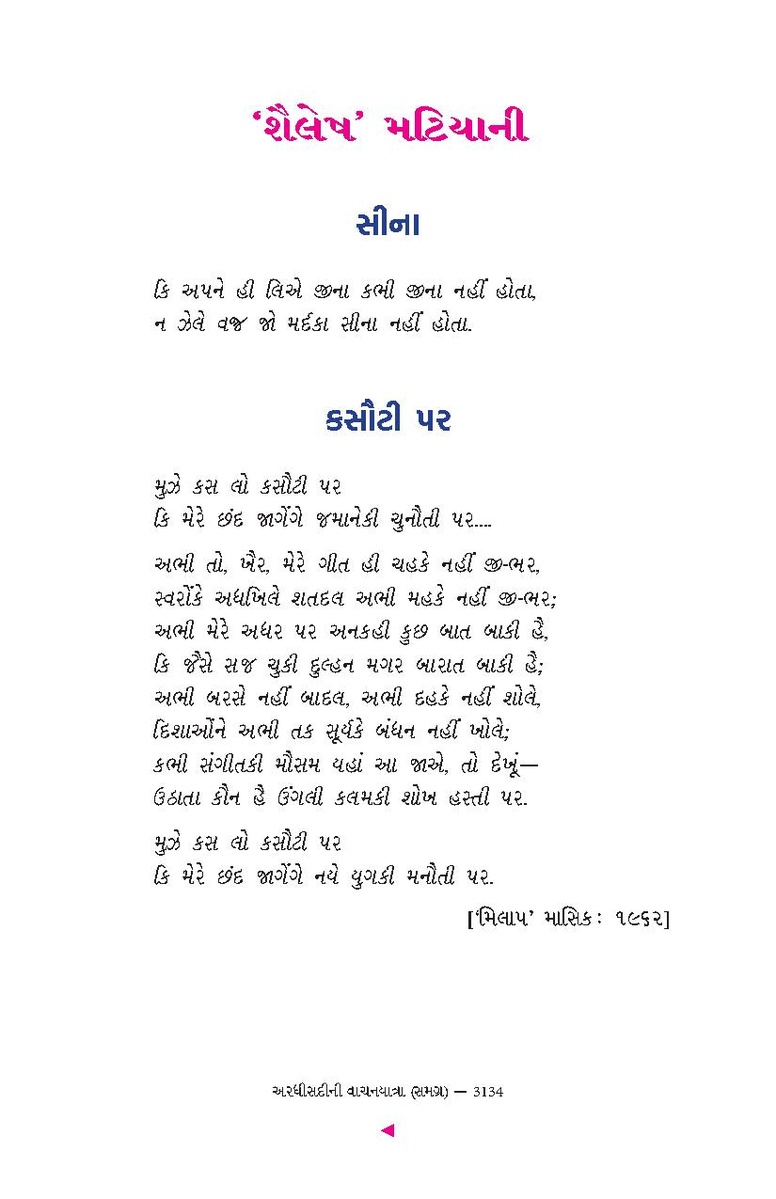 ‘શૈલેષ’ મટિયાની
સીના
કિ અપને હી લિએ જીના કભી જીના નહીં હોતા,
ન ઝેલે વજ્ર જો મર્દકા સીના નહીં હોતા.
કસૌટી પર
મુઝે કસ લો કસૌટી પર
કિ મેરે છંદ જાગેંગે જમાનેકી ચુનૌતી પર....
અભી તો, ખૈર, મેરે ગીત હી ચહકે નહીં જી-ભર,
સ્વરોંકે અધખિલે શતદલ અભી મહકે નહીં જી-ભર;
અભી મેરે અધર પર અનકહી કુછ બાત બાકી હૈ,
કિ જૈસે સજ ચુકી દુલ્હન મગર બારાત બાકી હૈ;
અભી બરસે નહીં બાદલ, અભી દહકે નહીં શોલે,
દિશાઓંને અભી તક સૂર્યકે બંધન નહીં ખોલે;
કભી સંગીતકી મૌસમ યહાં આ જાએ, તો દેખૂં—
ઉઠાતા કૌન હૈ ઉંગલી કલમકી શોખ હસ્તી પર.
મુઝે કસ લો કસૌટી પર
કિ મેરે છંદ જાગેંગે નયે યુગકી મનૌતી પર.
[‘મિલાપ’ માસિક: ૧૯૬૨]
અરધીસદીની વાચનયાત્રા (સમગ્ર) — 3134